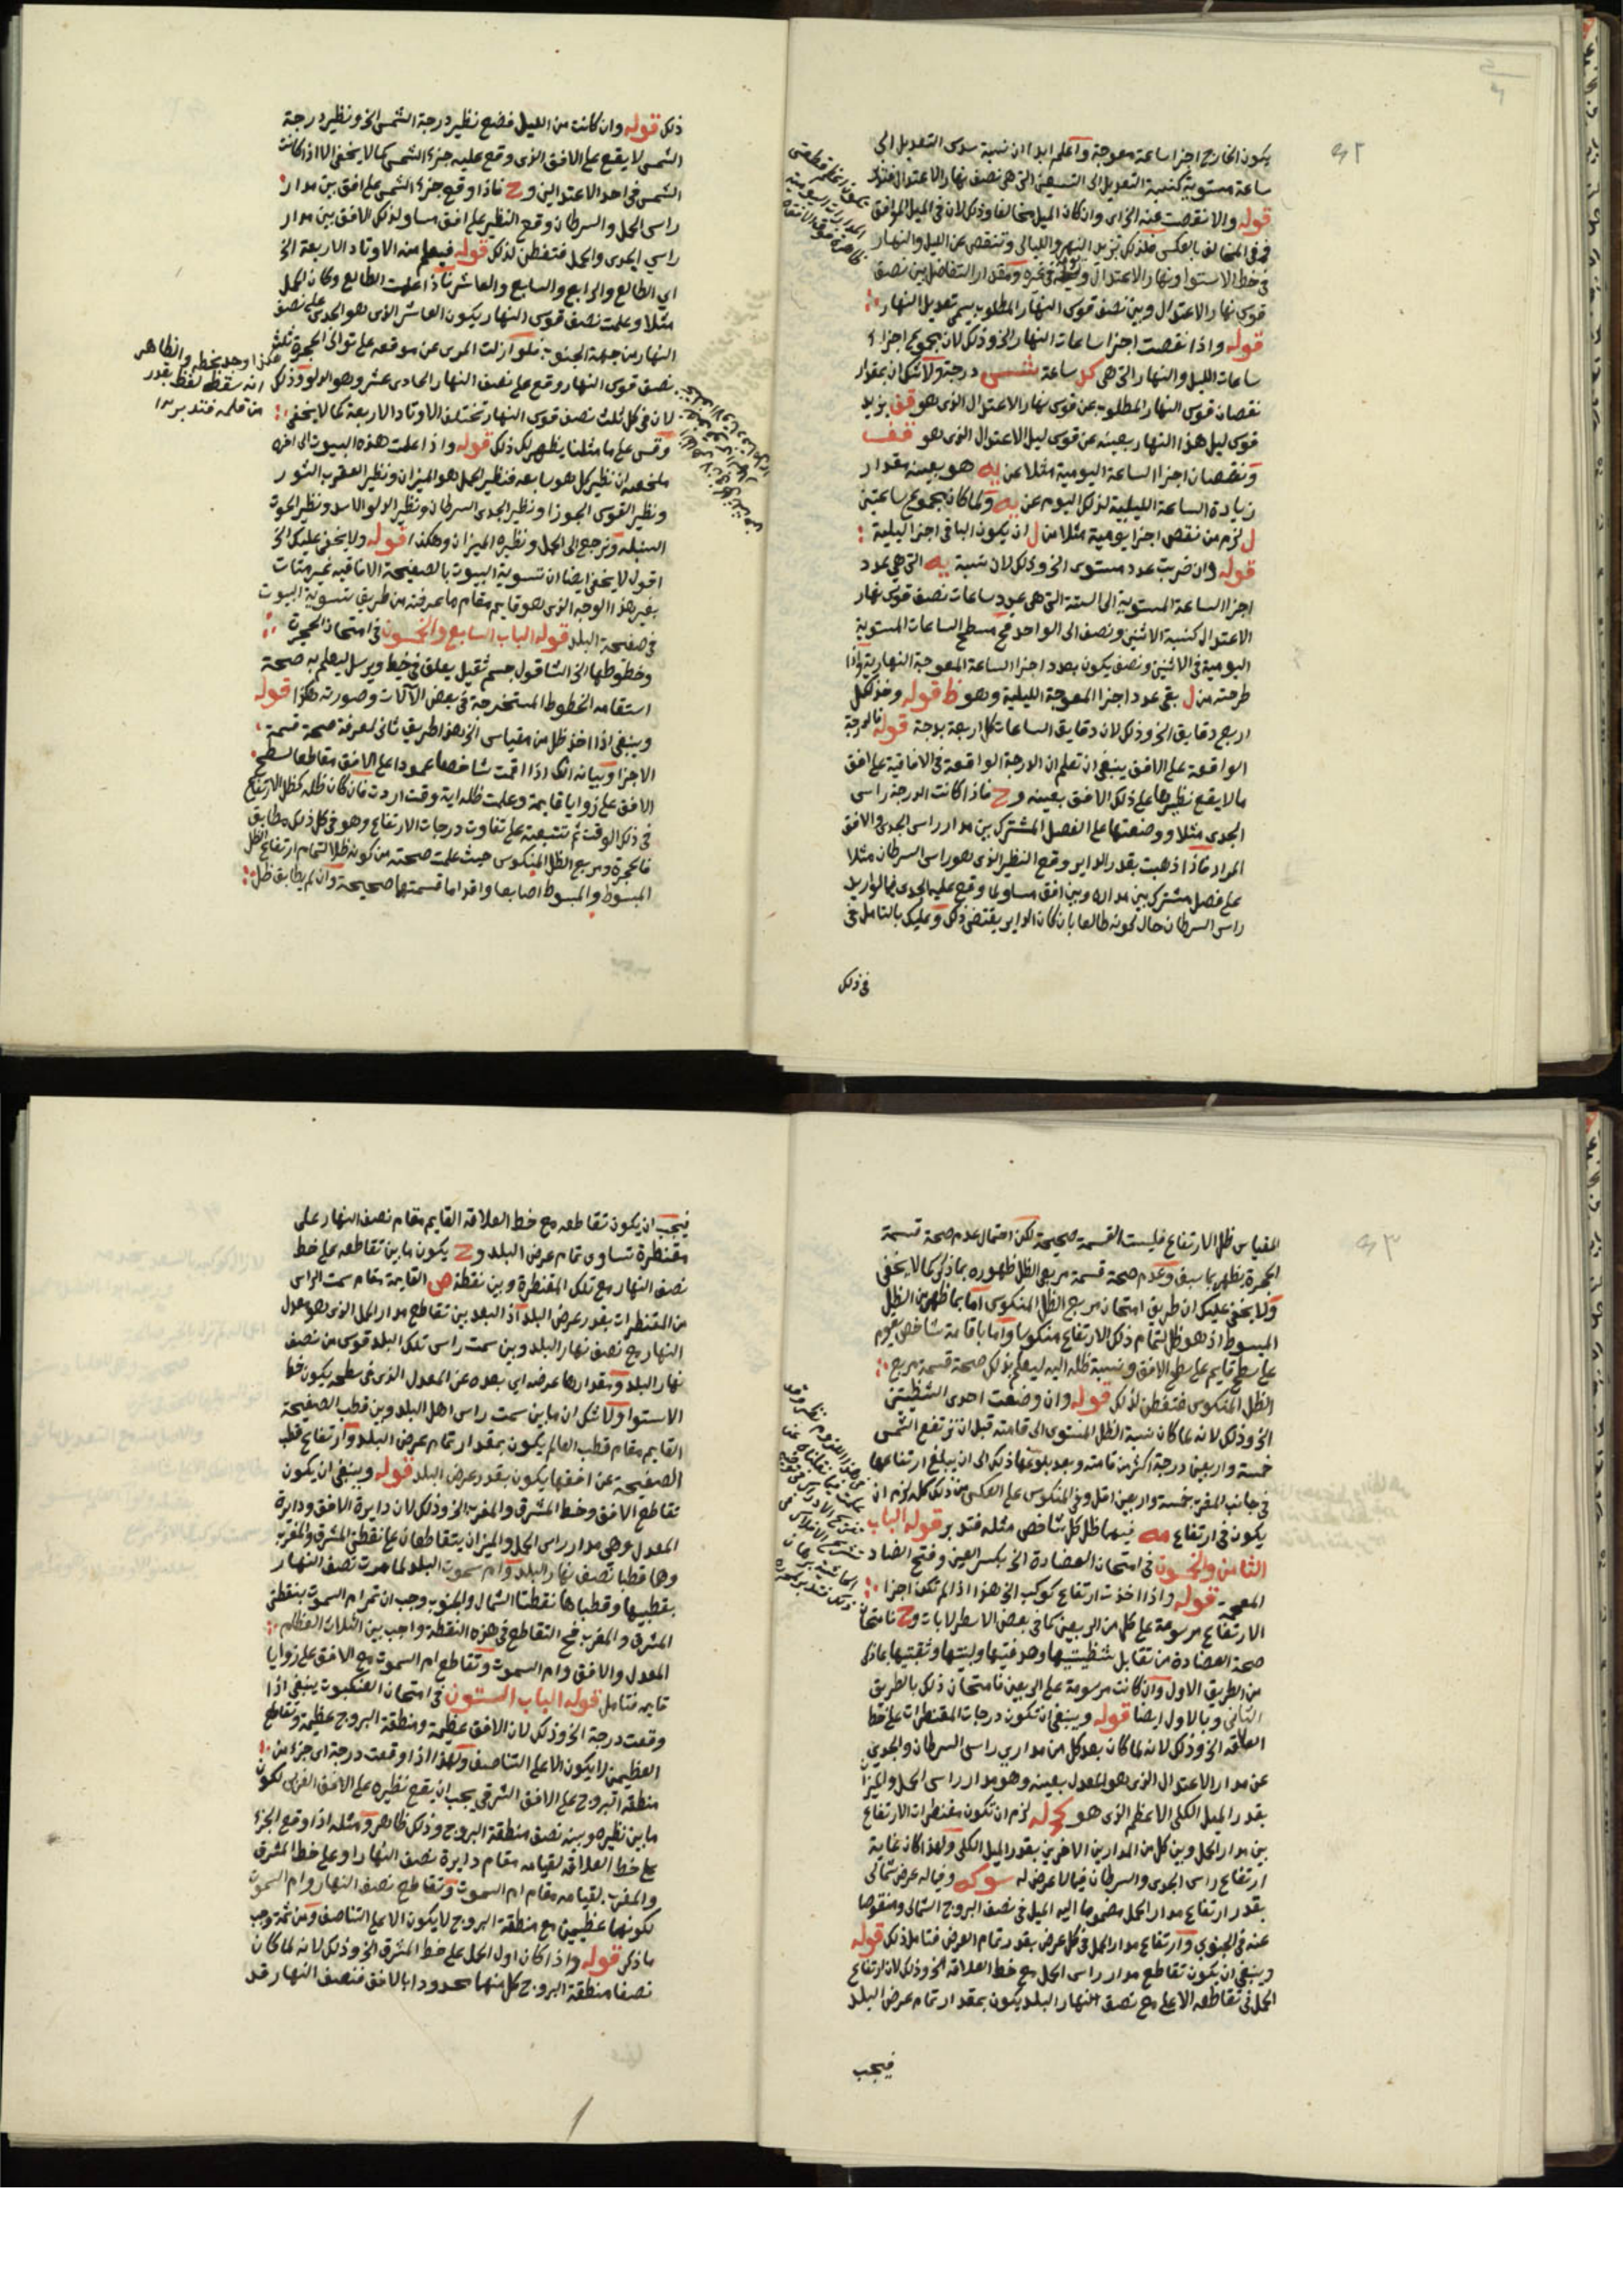 ٤٢
يكون الخارج اجزا ساعة معوجة واعلم ايدا ان نسبة سدس التعديل الى
ساعة مستوية كنسبة التعديل الى التسعين التى هى نصف نهار الاعتدال فتدبر
قوله والا نقصت عنه الخ اى وان كان الميل مخالفا وذلك لان فى الميل الموافق
وفى المخالف بالعكس فلذلك تزيد النهر والليالى وتنقص عن الليل والنهار
فى خط الاستوا ونهار الاعتدال فى غيره ومقدار التفاضل بين نصف
قوس نهار الاعتدال وبين نصف قوس النهار المطلوب يسمى تعديل النهار
قوله واذا نقصت اجزا ساعات النهار الخ وذلك لان مجموع اجزاء
ساعات الليل والنهار التى هى كل ساعة شس درجة ولا شك ان بمقدار
نقصان قوس النهار المطلوب عن قوس نهار الاعتدال الذى هو قف يزيد
قوس ليل هذا النهار بعينه عن قوس ليل الاعتدال الذى هو قف
ونقصان اجزا الساعة اليومية مثلا عن يه هو بعينه مقدار
زيادة الساعة الليلية لذلك اليوم عن يه ولما كان مجموع ساعتين
ل لزم من نقص اجزا يومية مثلا من ل ان يكون الباقى اجزا ليلية
قوله وان ضربت عدد مستوى الخ وذلك لان نسبة يه التى هى عدد
اجزا الساعة المستوية الى الستة التى هى عدد ساعات نصف قوس نهار
الاعتدال كنسبة الاثنين ونصف الى الواحد فح مسطح الساعات المستوية
اليومية فى الاثنين ونصف يكون بعدد اجزا الساعة المعوجة النهارية واذا
طرحته من ل بقى عدد اجزا المعوجة الليلية وهو ظ قوله وخذ لكل
اربع دقايق الخ وذلك لان دقايق الساعات كل اربعة بدرجة قوله فالدرجة
الواقعة على الافق ينبغى ان تعلم ان الدرجة الواقعة فى الافاقية على افق
ما لا يقع نظيرها على ذلك الافق بعينه وح فاذا كانت الدرجة راس
الجدى مثلا ووضعتها على الفصل المشترك بين مدار راس الجدى والافق
المراد فاذا ذهبت بقدر الداير وقع النظير الذى هو راس السرطان مثلا
على فصل مشترك بين مداره وبين افق مساو لما وقع عليه الجدى
راس السرطان حال كونه طالعا بان كان الداير يقتضى ذلك وعليك بالتامل فى
فى ذلك
ذلك قوله وان كانت من الليل فضع نظير درجة الشمس الخ ونظير درجة
الشمس لا يقع على الافق الذى وقع عليه جزء الشمس كما لا يخفى الا اذا كانت
الشمس فى احد الاعتدالين وح فاذا وقع جزء الشمس على افق بين مدار
راس الحمل والسرطان وقع النظير على افق مساو لذلك الافق بين مدار
راسى الجدى والحمل فتفطن لذلك قوله فيعلم منه الاوتاد الاربعة الخ
اى الطالع والرابع والسابع والعاشر فاذا علمت الطالع وكان الحمل
مثلا وعلمت نصف قوس النهار يكون العاشر الذى هو الجدى على نصف
النهار من جهة الجنوب فلو ازلت المرى عن موقعه على توالى الحجرة ثلث
نصف قوس النهار وقع على نصف النهار الحادى عشر وهو الدلو وذلك
لان فى كل ثلث نصف قوس النهار تختلف الاوتاد الاربعة كما لا يخفى
وقس على ما مثلنا يظهر لك ذلك قوله واذا علمت هذه البيوت الى اخره
ملخصه ان نظير كل هو سابعه فنظير الحمل هو الميزان ونظير العقرب الثور
ونظير القوس الجوزا ونظير الجدى السرطان ونظير الدلو الاسد ونظير الحوت
السنبلة وترجع الى الحمل ونظيره الميزان وهكذا قوله ولا يخفى عليك الخ
اقول لا يخفى ايضا ان تسوية البيوت بالصفيحة الافاقية غير متات
بغير هذا الوجه الذى هو قايم مقام ما عرفته من طريق تسوية البيوت
فى صفيحة البلد قوله الباب السابع والخمسون فى امتحان الحجرة
وخطوطها الخ الشاقول جسم ثقيل يعلق فى خيط ويرسل ليعلم به صحة
استقامة الخطوط المستخرجة فى بعض الآلات وصورته هكذا قوله
وينبغى اذا اخذ ظل من مقياس الخ هذا طريق ثانى لمعرفة صحة قسمة
الاجزا وبيانه انك اذا اقمت شاخصا عمودا على الافق مقاطعا لسطح
الافق على زوايا قايمة وعلمت ظله اية وقت اردت فان كان ظله كظل الارتفاع
فى ذلك الوقت ثم تتبعته على تفاوت درجات الارتفاع وهو فى كل ذلك مطابق
فالحجرة ومربع الظل المنكوس حيث علمت صحته من كونه ظلا لتمام ارتفاع الظل
المبسوط والمبسوط اصابعا واقداما قسمتها صحيحة وان لم يطابق ظل
هكذا وجد بخطه والظاهر
انه سقط لفظ بقدر
من قلمه فتدبر
٤٣
المقياس ظل الارتفاع فليست القسمة صحيحة لكن احتمال عدم صحة قسمة
الحجرة يظهر بما سبق وعدم صحة قسمة مربعى الظل ظهوره بما ذكر كما لا يخفى
ولا يخفى عليك ان طريق امتحان مربع الظل المنكوس اما بما ظهر من الظل
المبسوط اذ هو ظل لتمام ذلك الارتفاع منكوسا واما باقامة شاخص يقوم
على سطح قايم على سطح الافق ونسبة ظله اليه ليعلم بذلك صحة قسمة مربع
الظل المنكوس فتفطن لذلك قوله وان وضعت احدى الشظيتين
الخ وذلك لانه لما كان نسبة الظل المستوى الى قامته قبل ان ترتفع الشمس
خمسة واربعين درجة اكثر من قامته وبعد بلوغها ذلك الى ان يبلغ ارتفاعها
فى جانب المغرب خمسة واربعين اقل وفى المنكوس على العكس من ذلك كله لزم ان
يكون فى ارتفاع مه فيهما ظل كل شاخص مثله فتدبر قوله الباب
الثامن والخمسون فى امتحان العضادة الخ بكسر العين وفتح الضاد
المعجمة قوله واذا اخذت ارتفاع كوكب الخ هذا اذا لم تكن اجزا
الارتفاع مرسومة على كل من الربعين كما فى بعض الاسطرلابات وح فامتحان
صحة العضادة من تقابل شظيتيها وهدفتيها ولبنتيها وثقبتيها بما ذكر
من الطريق الاول وان كانت مرسومة على الربعين فامتحان ذلك بالطريق
الثانى وبالاول ايضا قوله وينبغى ان تكون درجات المقنطرات على خط
العلاقة الخ وذلك لانه لما كان بعد كل من مدارى راسى السرطان والجدى
عن مدار الاعتدال الذى هو المعدل بعينه وهو مدار راس الحمل والميزان
بقدر الميل الكلى الاعظم الذى هو كج له لزم ان تكون مقنطرات الارتفاع
بين مدار الحمل وبين كل من المدارين الاخرين بقدر الميل الكلى ولهذا كان غاية
ارتفاع راس الجدى والسرطان فيما لا عرض له سو كه وفيما له عرض شمالى
بقدر ارتفاع مدار الحمل مضموما اليه الميل فى نصف البروج الشمالى ومنقوصا
عنه فى الجنوبى وارتفاع مدار الحمل فى كل عرض بقدر تمام العرض فتامل ذلك قوله
وينبغى ان يكون تقاطع مدار راس الحمل مع خط العلاقة الخ وذلك لان ارتفاع
الحمل فى تقاطعه الاعلى مع نصف النهار البلد يكون بمقدار تمام عرض البلد
فيجب
فيجب ان يكون تقاطعه مع خط العلاقة القايم مقام نصف النهار على
مقنطرة تساوى تمام عرض البلد وح يكون ما بين تقاطعه على خط
نصف النهار مع تلك المقنطرة وبين نقطة ص القايمة مقام سمت الراس
من المقنطرات بقدر عرض البلد اذ البعد بين تقاطع مدار الحمل الذى هو معدل
النهار مع نصف نهار البلد وبين سمت راس تلك البلد قوس من نصف
نهار البلد ومقدارها عرضه اى بعده عن المعدل الذى فى سطحه يكون خط
الاستوا ولا شك ان ما بين سمت راس اهل البلد وبين قطب الصفيحة
القايم مقام قطب العالم يكون بمقدار تمام عرض البلد وارتفاع قطب
الصفيحة عن افقها يكون بقدر عرض البلد قوله وينبغى ان يكون
تقاطع الافق وخط المشرق والمغرب الخ وذلك لان دايرة الافق ودايرة
المعدل وهى مدار راس الحمل والميزان يتقاطعان على نقطتى المشرق والمغرب
وهما قطبا نصف نهار البلد وام سموت البلد لما مرت نصف النهار
بقطبيها وقطباها نقطتا الشمال والجنوب وجب ان تمر ام السموت بنقطتى
المشرق والمغرب فح التقاطع فى هذه النقطة واجب بين الثلاث العظام
المعدل والافق وام السموت وتقاطع ام السموت مع الافق على زوايا
قايمة فتامل قوله الباب الستون فى امتحان العنكبوت ينبغى اذا
وقعت درجة الخ وذلك لان الافق عظيمة ومنطقة البروج عظيمة وتقاطع
العظيمتين لا يكون الا على التناصف ولهذا اذا وقعت درجة اى جزء من
منطقة البروج على الافق الشرقى يجب ان يقع نظيره على الافق الغربى لكون
ما بين نظيره وبينه نصف منطقة البروج وذلك ظاهر ومثله اذا وقع الجزء
على خط العلاقة لقيامه مقام دايرة نصف النهار او على خط المشرق
والمغرب لقيامه مقام ام السموت وتقاطع نصف النهار وام السموت
لكونهما عظيمتين مع منطقة البروج لا يكون الا على التناصف ومن ثمة وجب
ما ذكر قوله واذا كان اول الحمل على خط المشرق الخ وذلك لانه لما كان
نصفا منطقة البروج كل منهما محدودا بالافق فنصف النهار قد